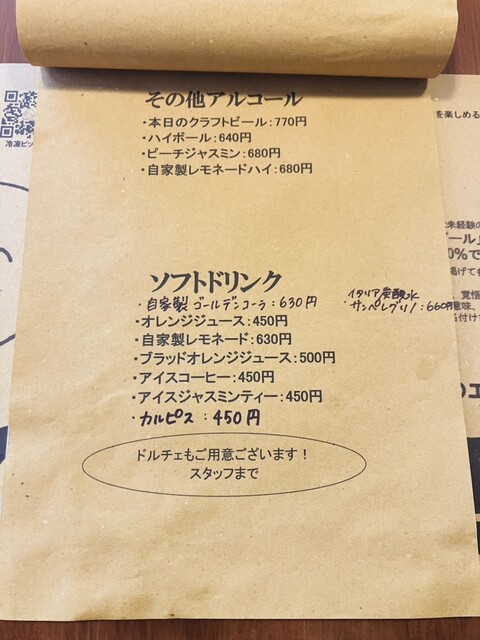 その他アルコール
・本日のクラフトビール：770円
・ハイボール：640円
・ピーチジャスミン：680円
・自家製レモネードハイ：680円
ソフトドリンク
・自家製ゴールデンコーラ：630円
イタリア炭酸水
・サンペレグリノ：660円
・オレンジジュース：450円
・自家製レモネード：630円
・ブラッドオレンジジュース：500円
・アイスコーヒー：450円
・アイスジャスミンティー：450円
・カルピス：450円
ドルチェもご用意ございます！
スタッフまで
冷凍ピッ
を楽しめる
未経験の
ール」
0%で
掲げて
覚悟
意味、
名付け
のエ